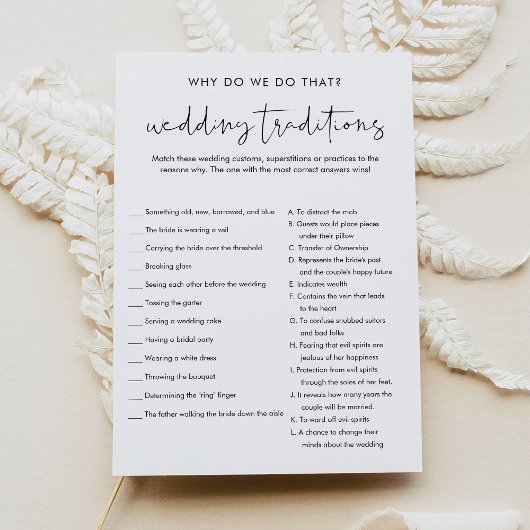 WHY DO WE DO THAT?
wedding traditions
Match these wedding customs, superstitions or practices to the
reasons why. The one with the most correct answers wins!
___ Something old, new, borrowed, and blue
___ The bride is wearing a veil
___ Carrying the bride over the threshold
___ Breaking glass
___ Seeing each other before the wedding
___ Tossing the garter
___ Serving a wedding cake
___ Having a bridal party
___ Wearing a white dress
___ Throwing the bouquet
___ Determining the 'ring' finger
___ The father walking the bride down the aisle
A. To distract the mob
B. Guests would place pieces
under their pillow
C. Transfer of Ownership
D. Represents the bride's past
and the couple's happy future
E. Indicates wealth
F. Contains the vein that leads
to the heart
G. To confuse snubbed suitors
and bad folks
H. Fearing that evil spirits are
jealous of her happiness
I. Protection from evil spirits
through the soles of her feet.
J. It reveals how many years the
couple will be married.
K. To ward off evil spirits
L. A chance to change their
minds about the wedding